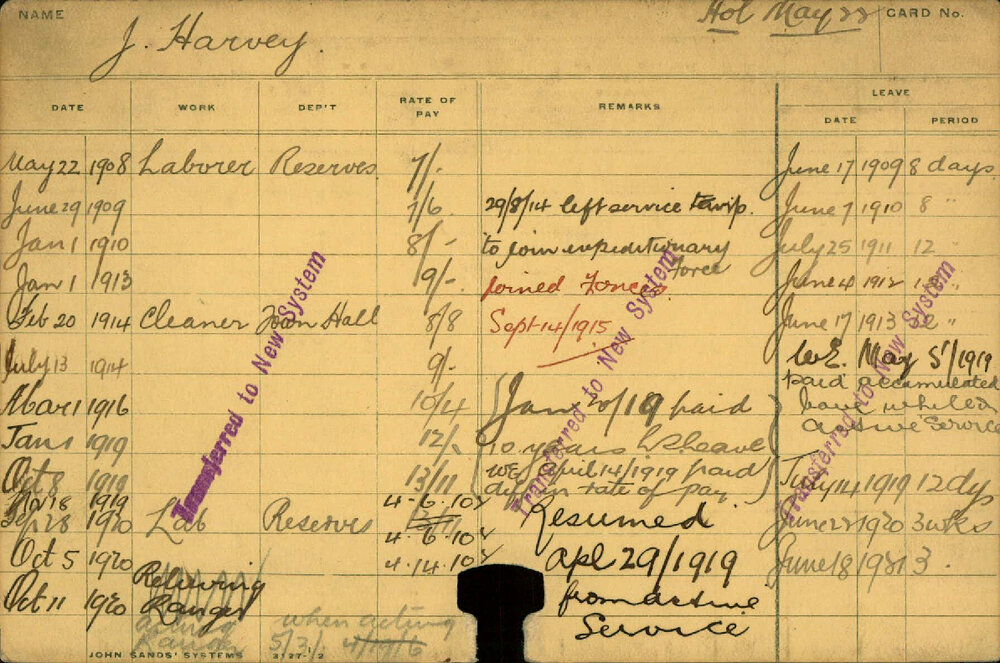 NAME
J. Harvey.
Hol May 22
CARD No.
DATE WORK DEP'T RATE OF PAY REMARKS LEAVE
DATE PERIOD
May 22 1908 Laborer Reserves 7/- June 17 1909 8 days
June 29 1909 7/6 29/8/14 left service June 7 1910 8 "
Jan 1 1910 8/- to join expeditionary July 25 1911 12 "
Force
Jan 1 1913 9/- joined Forces June 4 1912
Feb 20 1914 Cleaner Town Hall 8/8 Sept 14/1915 June 17 1913 12 "
July 13 1914 9/- W.E. May 5/1919
paid accumulated
Mar 1 1916 10/4 Jan 20/19 paid leave whilst on
active Service
Jan 1 1919 12/- 10 years leave
Oct 8 1919 13/11 WE April 14/1919 paid July 14 1919 12 dys
diff in rate of pay
1919 4-6-10
Sep 28 1920 Lab Reserves Resumed June 22 1920 3 wks
4-6-10
Oct 5 1920 4.14.10 Apl 29/1919 June 18 1921 3.
Relieving
Oct 11 1920 Ranger from active
acting when acting Service
Ranger 5/3/- 4/19/6
Transferred to New System
Transferred to New System
Transferred to New System
JOHN SANDS' SYSTEMS 3127-2